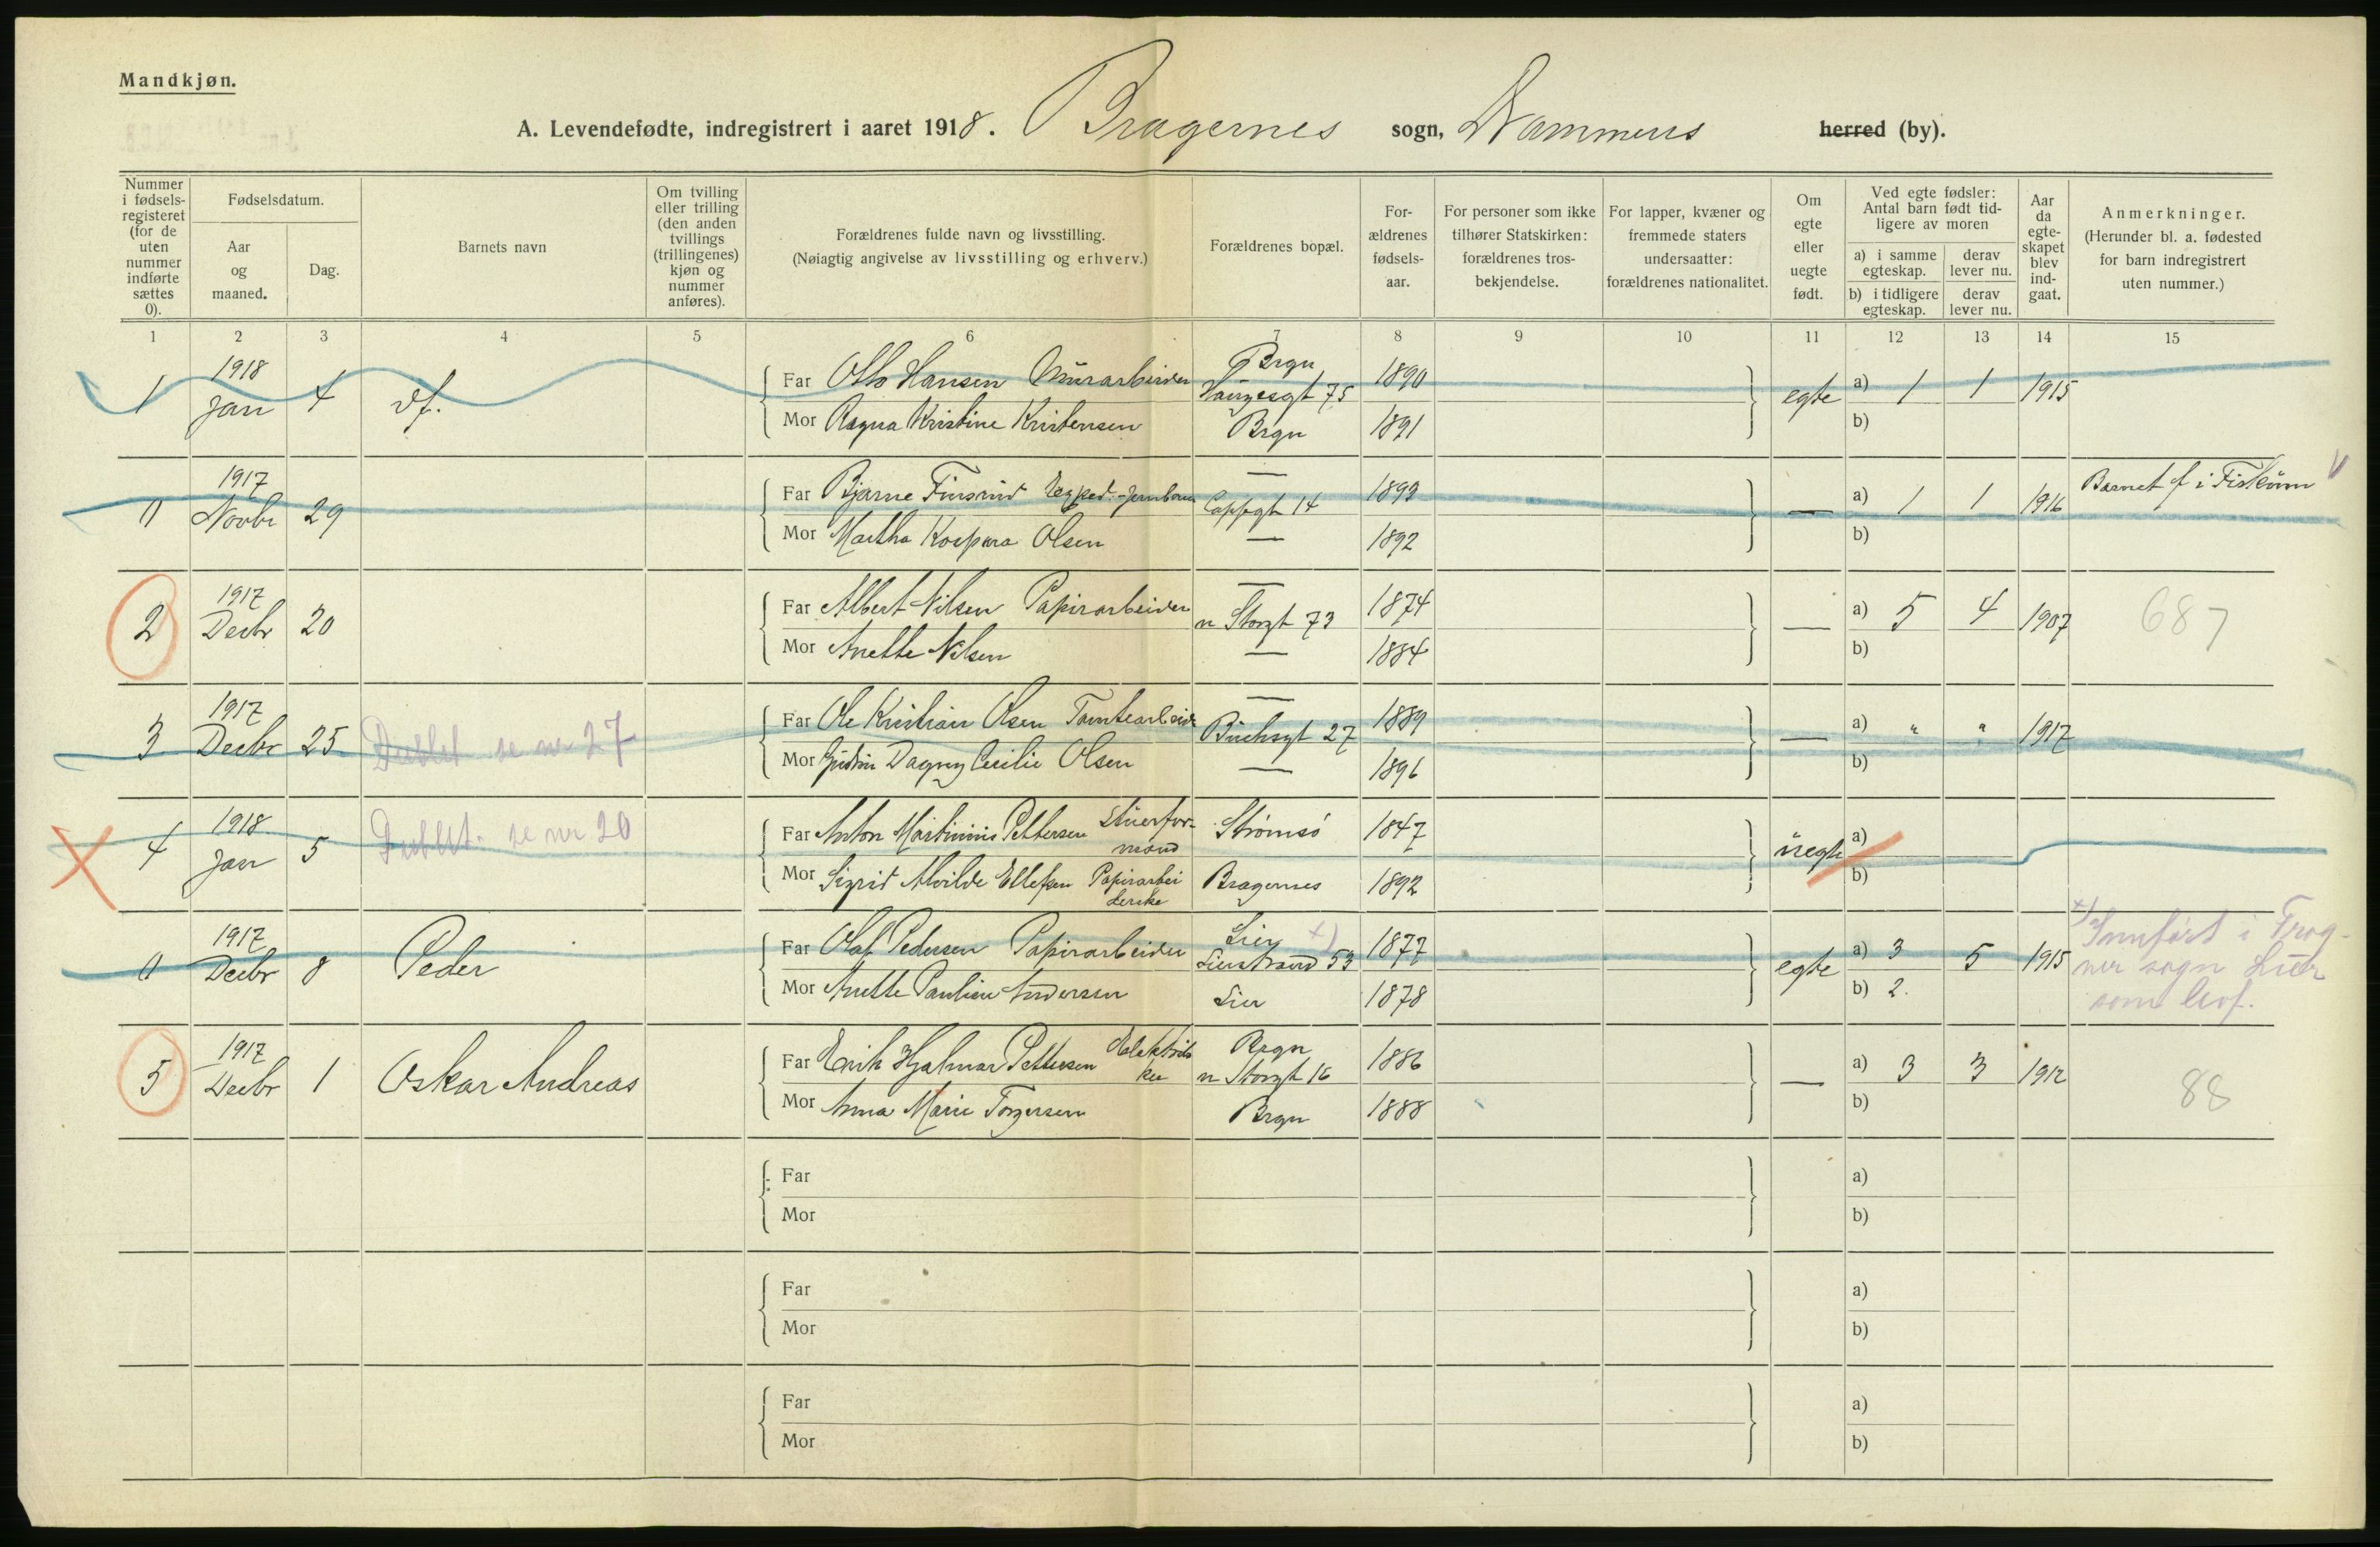 Mandkjøn.
A. Levendefødte, indregistrert i aaret 1918. Bragernes sogn, Drammens herred (by).
Nummer i fødsels-registeret (for de uten nummer indførte sættes 0).
Fødselsdatum.
Aar og maaned.
Dag.
Barnets navn
Om tvilling eller trilling (den anden tvillings (trillingenes) kjøn og nummer anføres).
Forældrenes fulde navn og livsstilling.
(Nøiagtig angivelse av livsstilling og erhverv.)
Forældrenes bopæl.
For-ældrenes fødsels-aar.
For personer som ikke tilhører Statskirken: forældrenes tros-bekjendelse.
For lapper, kvæner og fremmede staters undersaatter: forældrenes nationalitet.
Om egte eller uegte født.
Ved egte fødsler: Antal barn født tid-ligere av moren
a) i samme egteskap.
derav lever nu.
b) i tidligere egteskap.
derav lever nu.
Aar da egte-skapet blev ind-gaat.
Anmerkninger.
(Herunder bl. a. fødested for barn indregistrert uten nummer.)
1 2 3 4 5 6 7 8 9 10 11 12 13 14 15
1 1918 Jan 4 df. Far Otto Hansen Murarbeider Brgn 75 1890 egte a) 1 1 1915
Mor Ragna Kristine Kristensen Brgn 1891 b)
0 1917 Novbr 29 Far Bjarne Finsrud — Cappsgt 14 1892 — a) 1 1 1916 Barnet f i Fiskum
Mor Martha Olsen — 1892 b)
2 1917 Decbr 20 Far Albert Nilsen Papirarbeider — n Storgt 73 1874 — a) 5 4 1907 687
Mor Anette Nilsen — 1884 b)
3 1917 Decbr 25 Dublet se nr 27 Far Ole Kristian Olsen Tomtearbeider — Buchsgt 27 1889 — a) " " 1917
Mor Gudrun Dagny Cecilie Olsen — 1896 b)
4 1918 Jan 5 Dublet. se nr 20 Far Anton Martinius Pettersen Stuerfor-mand Strømsø 1847 uegte a)
Mor Sigrid Alvilde Ellefsen Papirarbei derske Bragernes 1892 b)
0 1917 Decbr 8 Peder Far Olaf Pedersen Papirarbeider Lier x) Lierstrand 53 1877 egte a) 3 5 1915 x) Innført i Frog-
Mor Anette Pauline Andersen Lier 1878 b) 2. ner sogn Lier
som levf.
5 1917 Decbr 1 Oskar Andreas Far Erik Hjalmar Pettersen Elektriker Brgn n Storgt 16 1886 — a) 3 3 1912 88
Mor Anna Marie Torgersen Brgn 1888 b)
Far a)
Mor b)
Far a)
Mor b)
Far a)
Mor b)